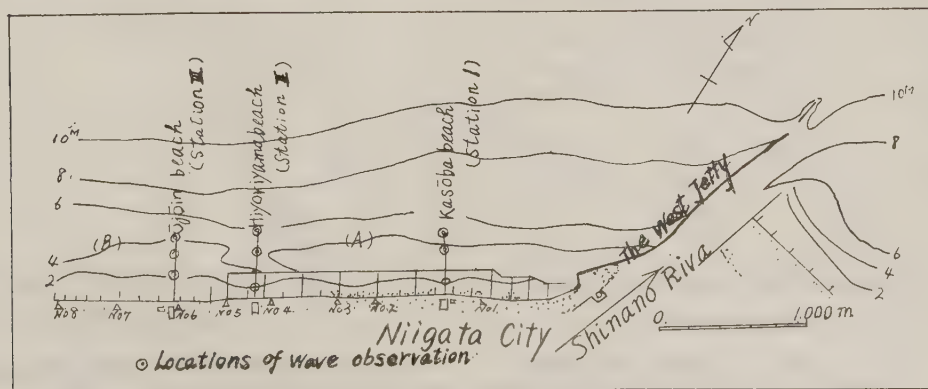 N
10M
10M
8
8
6
6
4
4
2
2
(B)
(A)
beach
(Station III)
Hiyoriyama beach
(Station II)
Kasōba beach
(Station I)
The West Jetty
Shinano Riva
No8
No7
No6
No5
No4
No3
No2
No1
Niigata City
0
1.000 m
⊙ Locations of wave observation